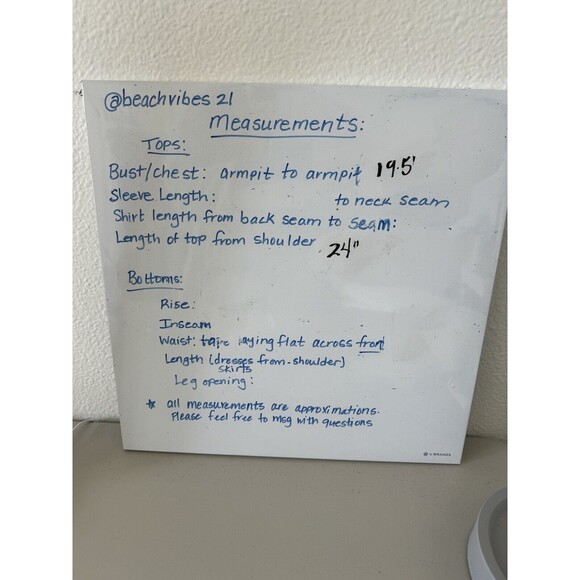 @beachvibes 21
Measurements:
TOPS:
Bust/chest: armpit to armpit 19.5'
Sleeve Length: to neck seam
Shirt length from back seam to seam:
Length of top from shoulder 24"
Bottoms:
Rise:
Inseam
Waist: laying flat across front
Length (dresses from-shoulder)
skirts
Leg opening:
* all measurements are approximations.
Please feel free to msg with questions
U BRANDS